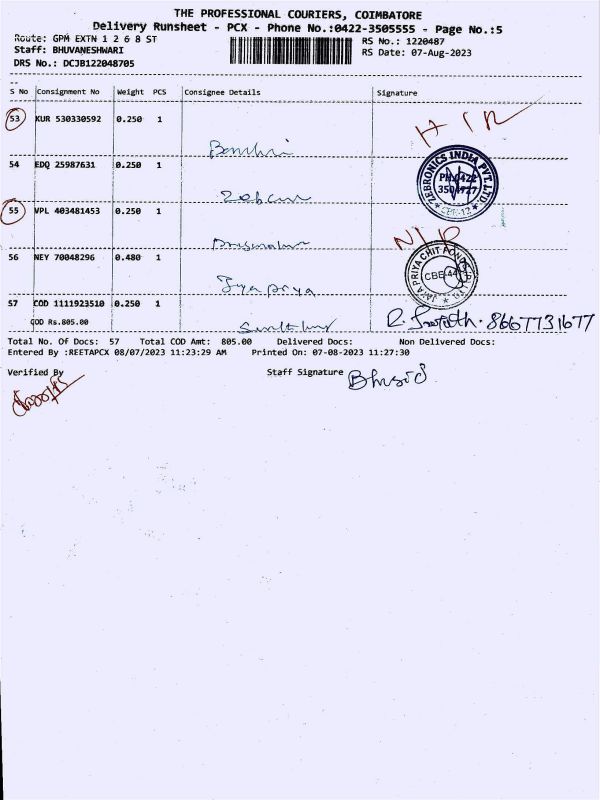 THE PROFESSIONAL COURIERS, COIMBATORE
Delivery Runsheet - PCX - Phone No.:0422-3505555 - Page No.:5
Route: GPM EXTN 1 2 6 8 ST
RS No.: 1220487
Staff: BHUVANESHWARI
RS Date: 07-Aug-2023
DRS No.: DCJB122048705
S No Consignment No Weight PCS Consignee Details Signature
53 KUR 530330592 0.250 1
54 EDQ 25987631 0.250 1
ZEBRONICS INDIA PVT. LTD
55 VPL 403481453 0.250 1
56 NEY 70048296 0.480 1
Jyapriya
JAYA PRIYA CHIT FUNDS
57 COD 1111923510 0.250 1
COD Rs.805.00
8667731677
Total No. Of Docs: 57 Total COD Amt: 805.00 Delivered Docs: Non Delivered Docs:
Entered By :REETAPCX 08/07/2023 11:23:29 AM Printed On: 07-08-2023 11:27:30
Verified By
Staff Signature